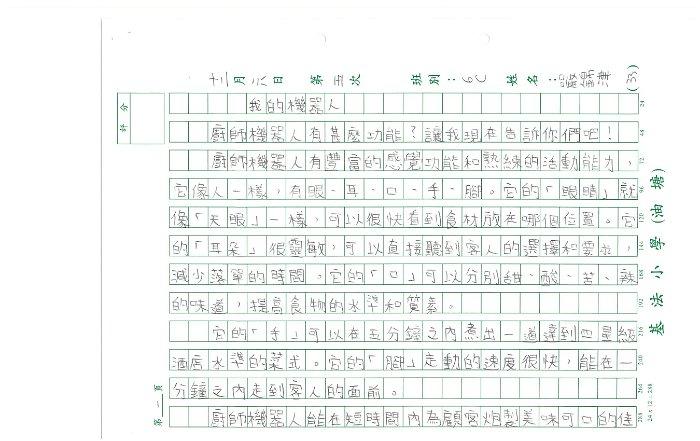 十二月八日 第五次 班別：6C 姓名： (33)
評分
我的機器人
廚師機器人有甚麼功能？讓我現在告訴你們吧！
廚師機器人有豐富的感覺功能和熟練的活動能力，
它像人一樣，有眼、耳、口、手、腳。它的「眼睛」就
像「天眼」一樣，可以很快看到食材放在哪個位置。它
的「耳朵」很靈敏，可以直接聽到客人的選擇和要求，
減少落單的時間。它的「口」可以分別甜、酸、苦、辣
的味道，提高食物的水準和質素。
它的「手」可以在五分鐘之內煮出一道達到四星級
酒店水準的菜式。它的「腳」走動的速度很快，能在一
分鐘之內走到客人的面前。
廚師機器人能在短時間內為顧客炮製美味可口的佳
第一頁
基法小學（油塘）
24
48
72
96
120
144
168
192
216
240
264
288
24 x 12 = 288